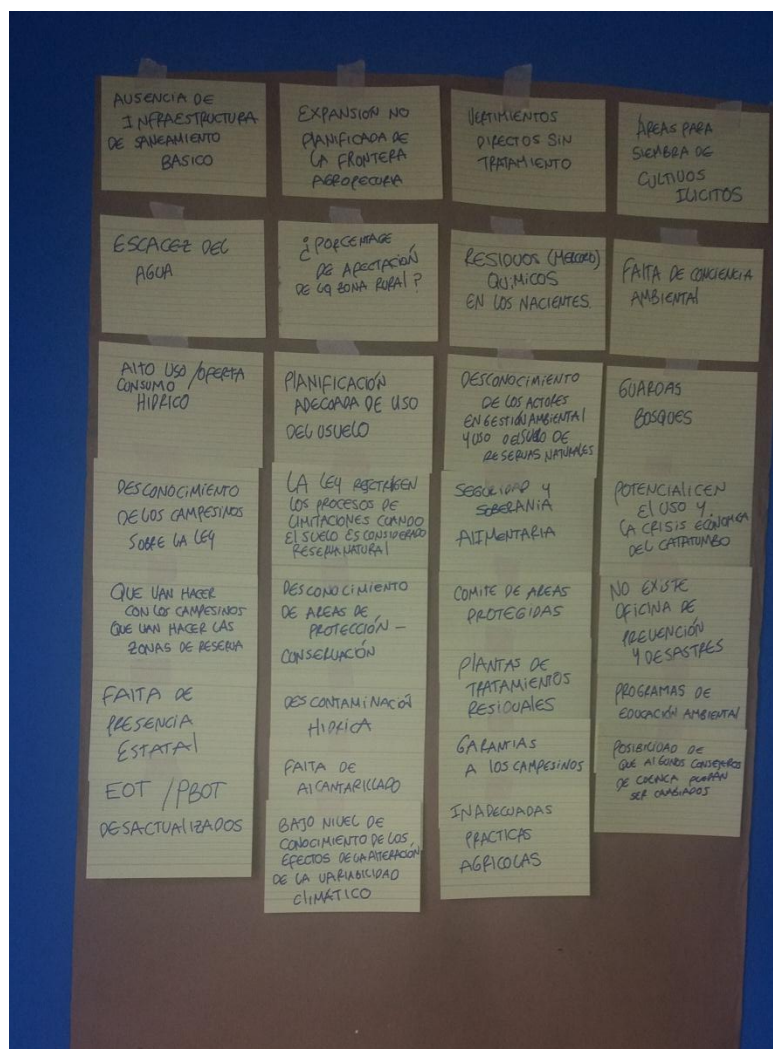 AUSENCIA DE
INFRAESTRUCTURA
DE SANEAMIENTO
BASICO
ESCACEZ DEL
AGUA
AlTO USO /OFERTA
CONSUMO
HIDRICO
DESCONOCIMIENTO
DE LOS CAMPESINOS
SOBRE LA LEY
QUE VAN HACER
CON LOS CAMPESINOS
QUE VAN HACER LAS
ZONAS DE RESERVA
FAlTA DE
PRESENCIA
ESTATAl
EOT / PBOT
DESACTUAlIZADOS
EXPANSION NO
PlANIFICADA DE
LA FRONTERA
AGROPECURIA
¿PORCENTAGE
DE AFECTACIÓN
DE LA ZONA RURAl?
PlANIFICACIÓN
ADECUADA DE USO
DEL USUELO
LA LEY RESTRIGEN
LOS PROCESOS DE
LIMITACIONES CUANDO
El SUELO ES CONSIDERADO
RESERVA NATURAl
DESCONOCIMIENTO
DE AREAS DE
PROTECCIÓN –
CONSERVACIÓN
DESCONTAMINACIÓN
HIDRICA
FAlTA DE
AlCANTARILLADO
BAJO NIVEL DE
CONOCIMIENTO DE LOS
EFECTOS DE LA AlTERACIÓN
DE LA VARIABILIDAD
ClIMÁTICO
VERTIMIENTOS
DIRECTOS SIN
TRATAMIENTO
RESIDUOS (MERCURIO)
QUiMICOS
EN LOS NACIENTES.
DESCONOCIMIENTO
DE LOS ACTORES
EN GESTIÓN AMBIENTAl
Y USO DEL SUELO DE
RESERVAS NATURALES
SEGURIDAD Y
SOBERANIA
AlIMENTARIA
COMITE DE AREAS
PROTEGIDAS
PlANTAS DE
TRATAMIENTOS
RESIDUALES
GARANTIAS
A LOS CAMPESINOS
INADECUADAS
PRACTICAS
AGRICOLAS
ÁREAS PARA
SIEMBRA DE
CULTIVOS
ILICITOS
FAlTA DE CONCIENCIA
AMBIENTAl
GUARDAS
BOSQUES
POTENCIAlICEN
El USO Y
LA CRISIS ECONÓMICA
DEL CATATUMBO
NO EXISTE
OFICINA DE
PREVENCIÓN
Y DESASTRES
PROGRAMAS DE
EDUCACIÓN AMBIENTAl
POSIBILIDAD DE
QUE AlGUNOS CONSEJEROS
DE CUENCA PUEDAN
SER CAMBIADOS